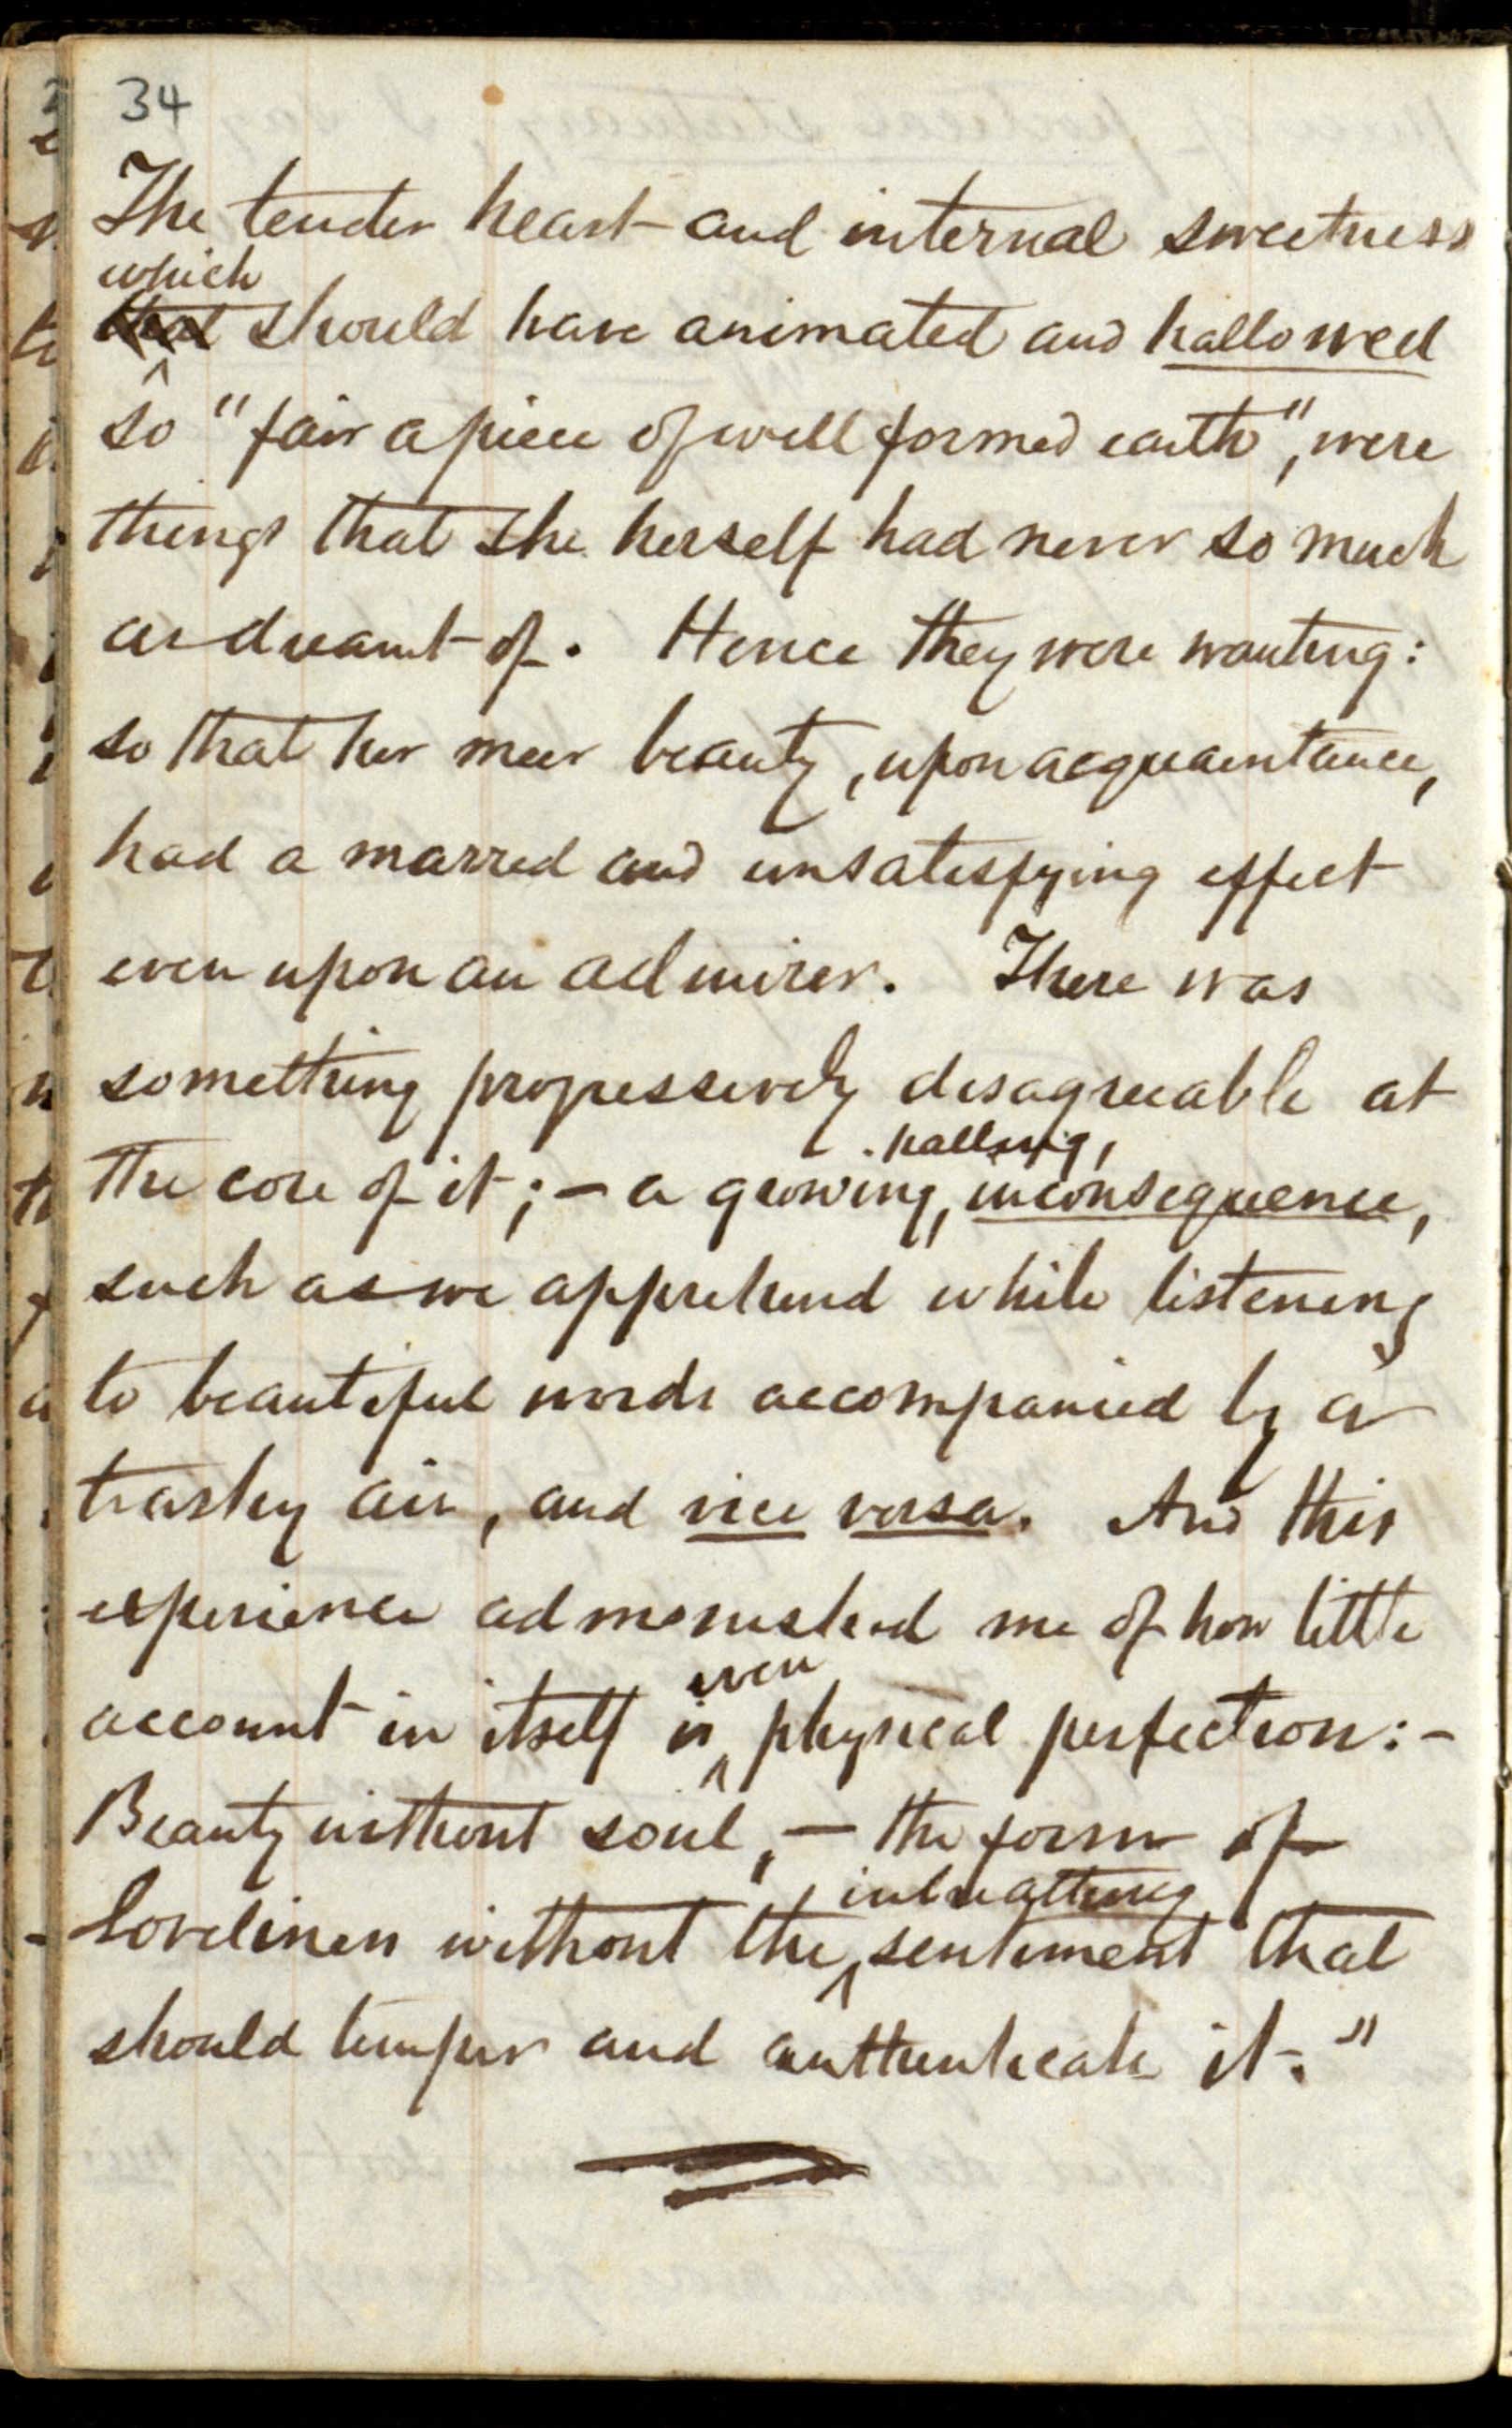 34
The tender heart and internal sweetness
which
that should have animated and hallowed
so "fair a piece of well formed earth", were
things that she herself had never so much
as dreamt of. Hence they were wanting:
so that her meer beauty, upon acquaintance,
had a marred and unsatisfying effect
even upon an admirer. There was
something progressively disagreeable at
the core of it; — a growing, inconsequence,
such as we apprehend while listening
to beautiful words accompanied by a
trashy air, and vice versa. And this
experience admonished me of how little
even
account in itself is physical perfection: -
Beauty without soul, — the form of
inbreathing
loveliness without the sentiment that
should temper and authenticate it."